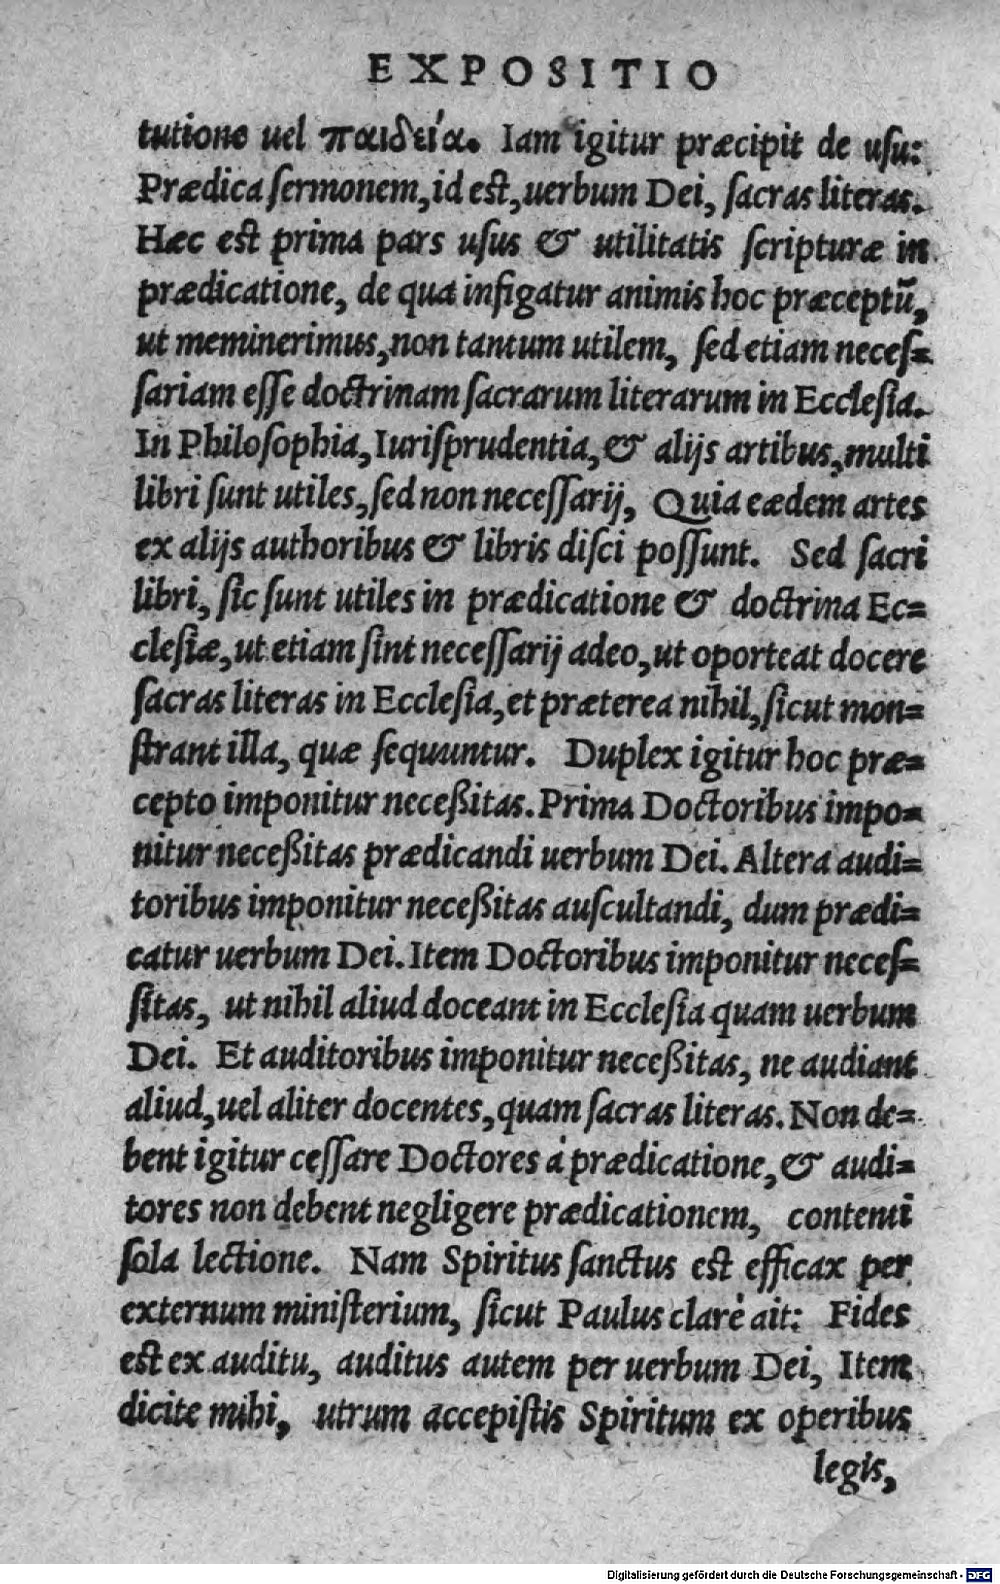 EXPOSITIO
tutione uel παιδεία. Iam igitur præcipit de uſu:
Prædica ſermonem, id est, uerbum Dei, ſacras literas.
Hæc est prima pars uſus & utilitatis ſcripturæ in
prædicatione, de qua infigatur animis hoc præceptū,
ut meminerimus, non tantum utilem, ſed etiam neceſ=
ſariam eſſe doctrinam ſacrarum literarum in Eccleſia.
In Philoſophia, Iuriſprudentia, & alijs artibus, multi
libri ſunt utiles, ſed non neceſſarij, Quia eædem artes
ex alijs authoribus & libris diſci poſſunt. Sed ſacri
libri, ſic ſunt utiles in prædicatione & doctrina Ec=
cleſiæ, ut etiam ſint neceſſarij adeo, ut oporteat docere
ſacras literas in Eccleſia, et præterea nihil, ſicut mon=
ſtrant illa, quæ ſequuntur. Duplex igitur hoc præ=
cepto imponitur neceßitas. Prima Doctoribus impo=
nitur neceßitas prædicandi uerbum Dei. Altera audi=
toribus imponitur neceßitas auſcultandi, dum prædi=
catur uerbum Dei. Item Doctoribus imponitur neceſ=
ſitas, ut nihil aliud doceant in Eccleſia quam uerbum
Dei. Et auditoribus imponitur neceßitas, ne audiant
aliud, uel aliter docentes, quam ſacras literas. Non de=
bent igitur ceſſare Doctores à prædicatione, & audi=
tores non debent negligere prædicationem, contenti
ſola lectione. Nam Spiritus ſanctus est efficax per
externum miniſterium, ſicut Paulus clarè ait: Fides
est ex auditu, auditus autem per uerbum Dei, Item
dicite mihi, utrum accepiſtis Spiritum ex operibus
legis,
Digitalisierung gefördert durch die Deutsche Forschungsgemeinschaft - DFG